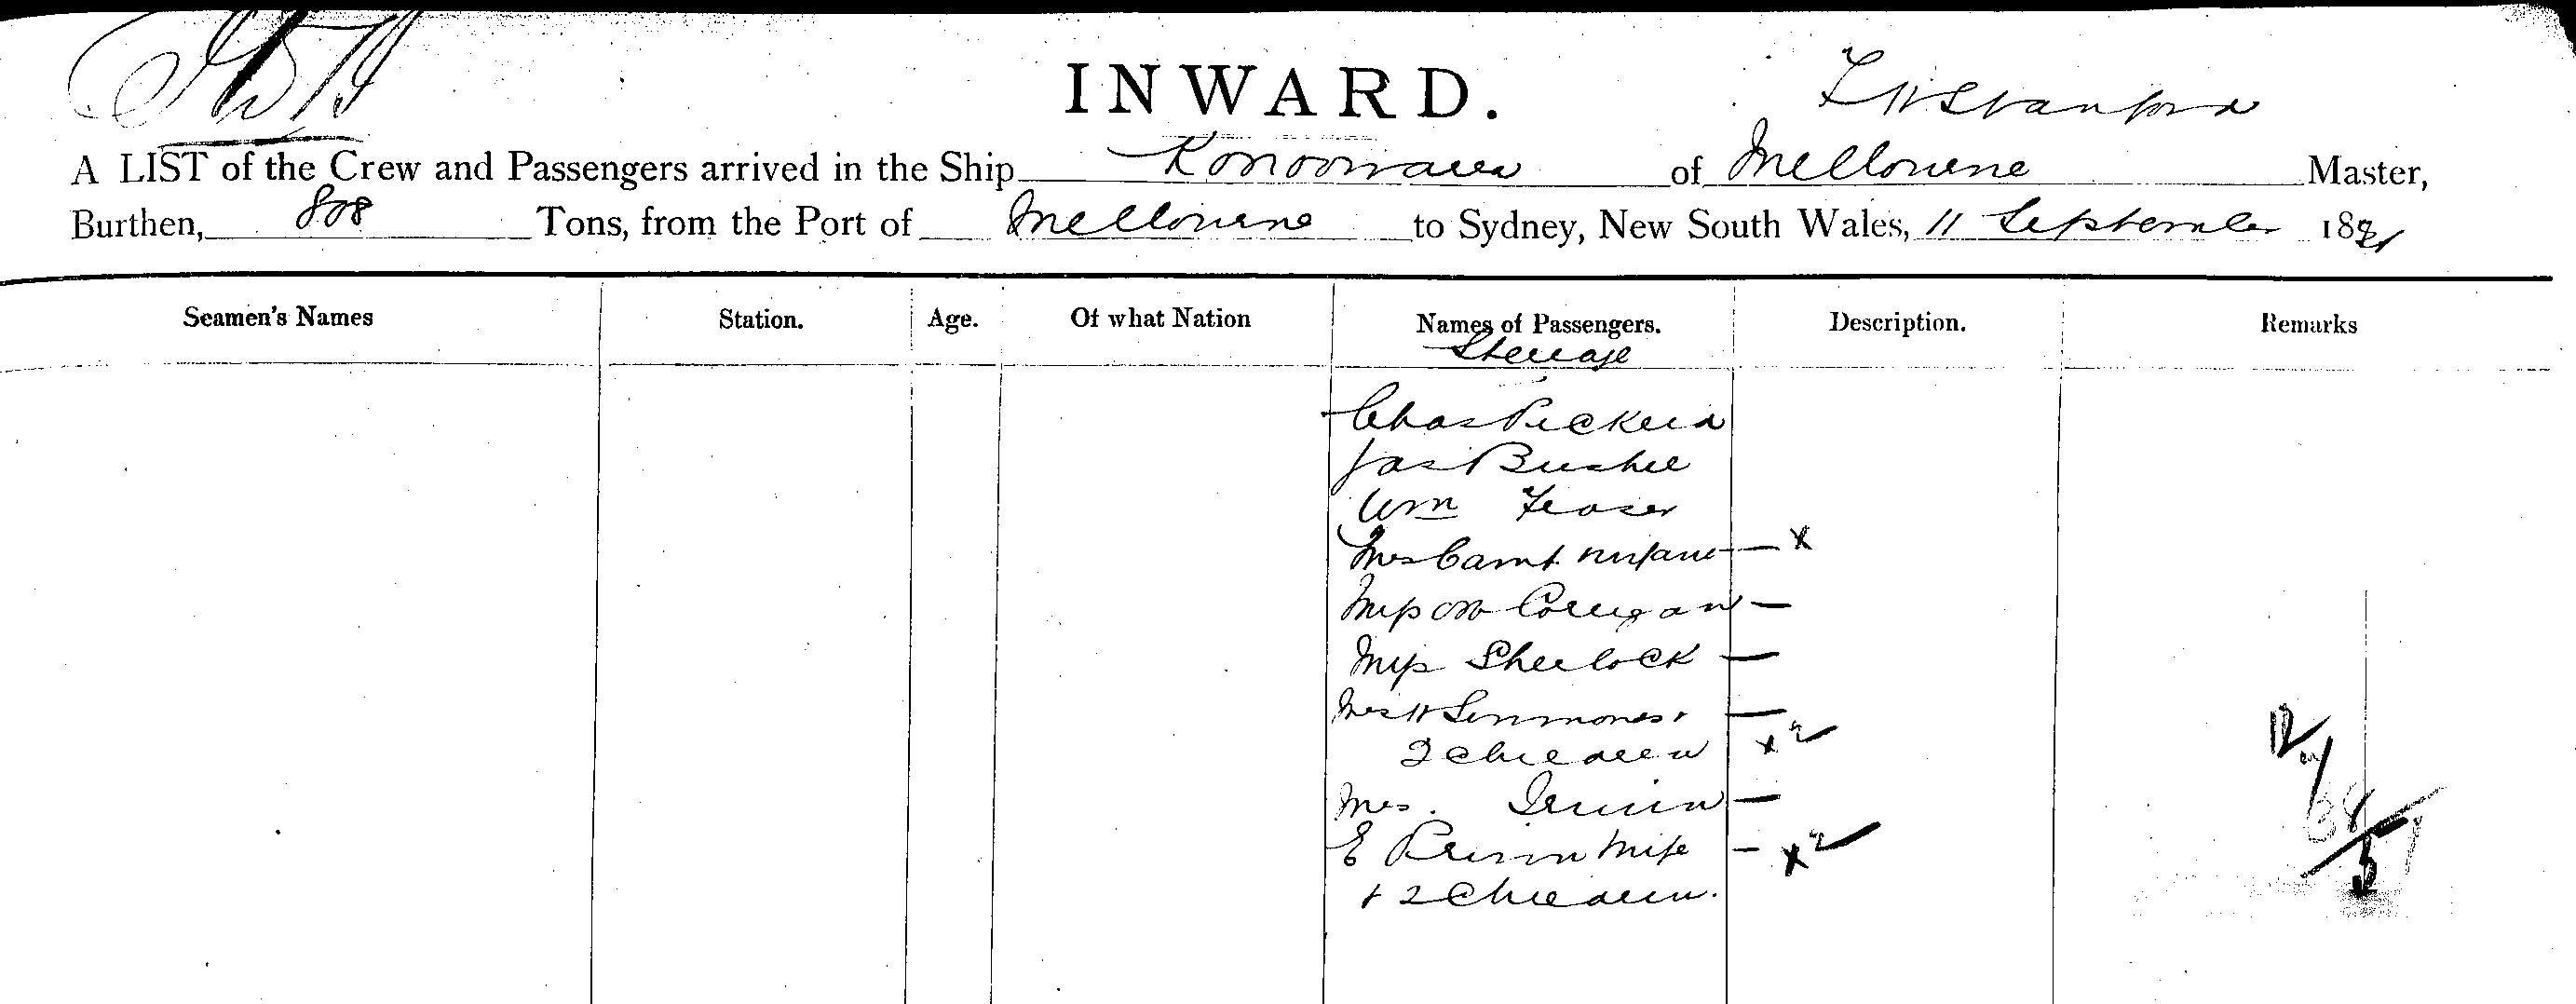 INWARD.
A LIST of the Crew and Passengers arrived in the Ship Konoowarra of Melbourne Master,
Burthen, 808 Tons, from the Port of Melbourne to Sydney, New South Wales, 11 September 1891
Seamen's Names Station. Age. Of what Nation Names of Passengers. Description. Remarks
Steerage
Chas Pickerd
Jas Bushel
Wm Fraser
Mrs Camt infant — x
Miss M Corrigan —
Miss Sherlock —
Mrs H Simmons + —
2 children x 2
Mrs. —
E Wife — x 2
+ 2 Children.
12